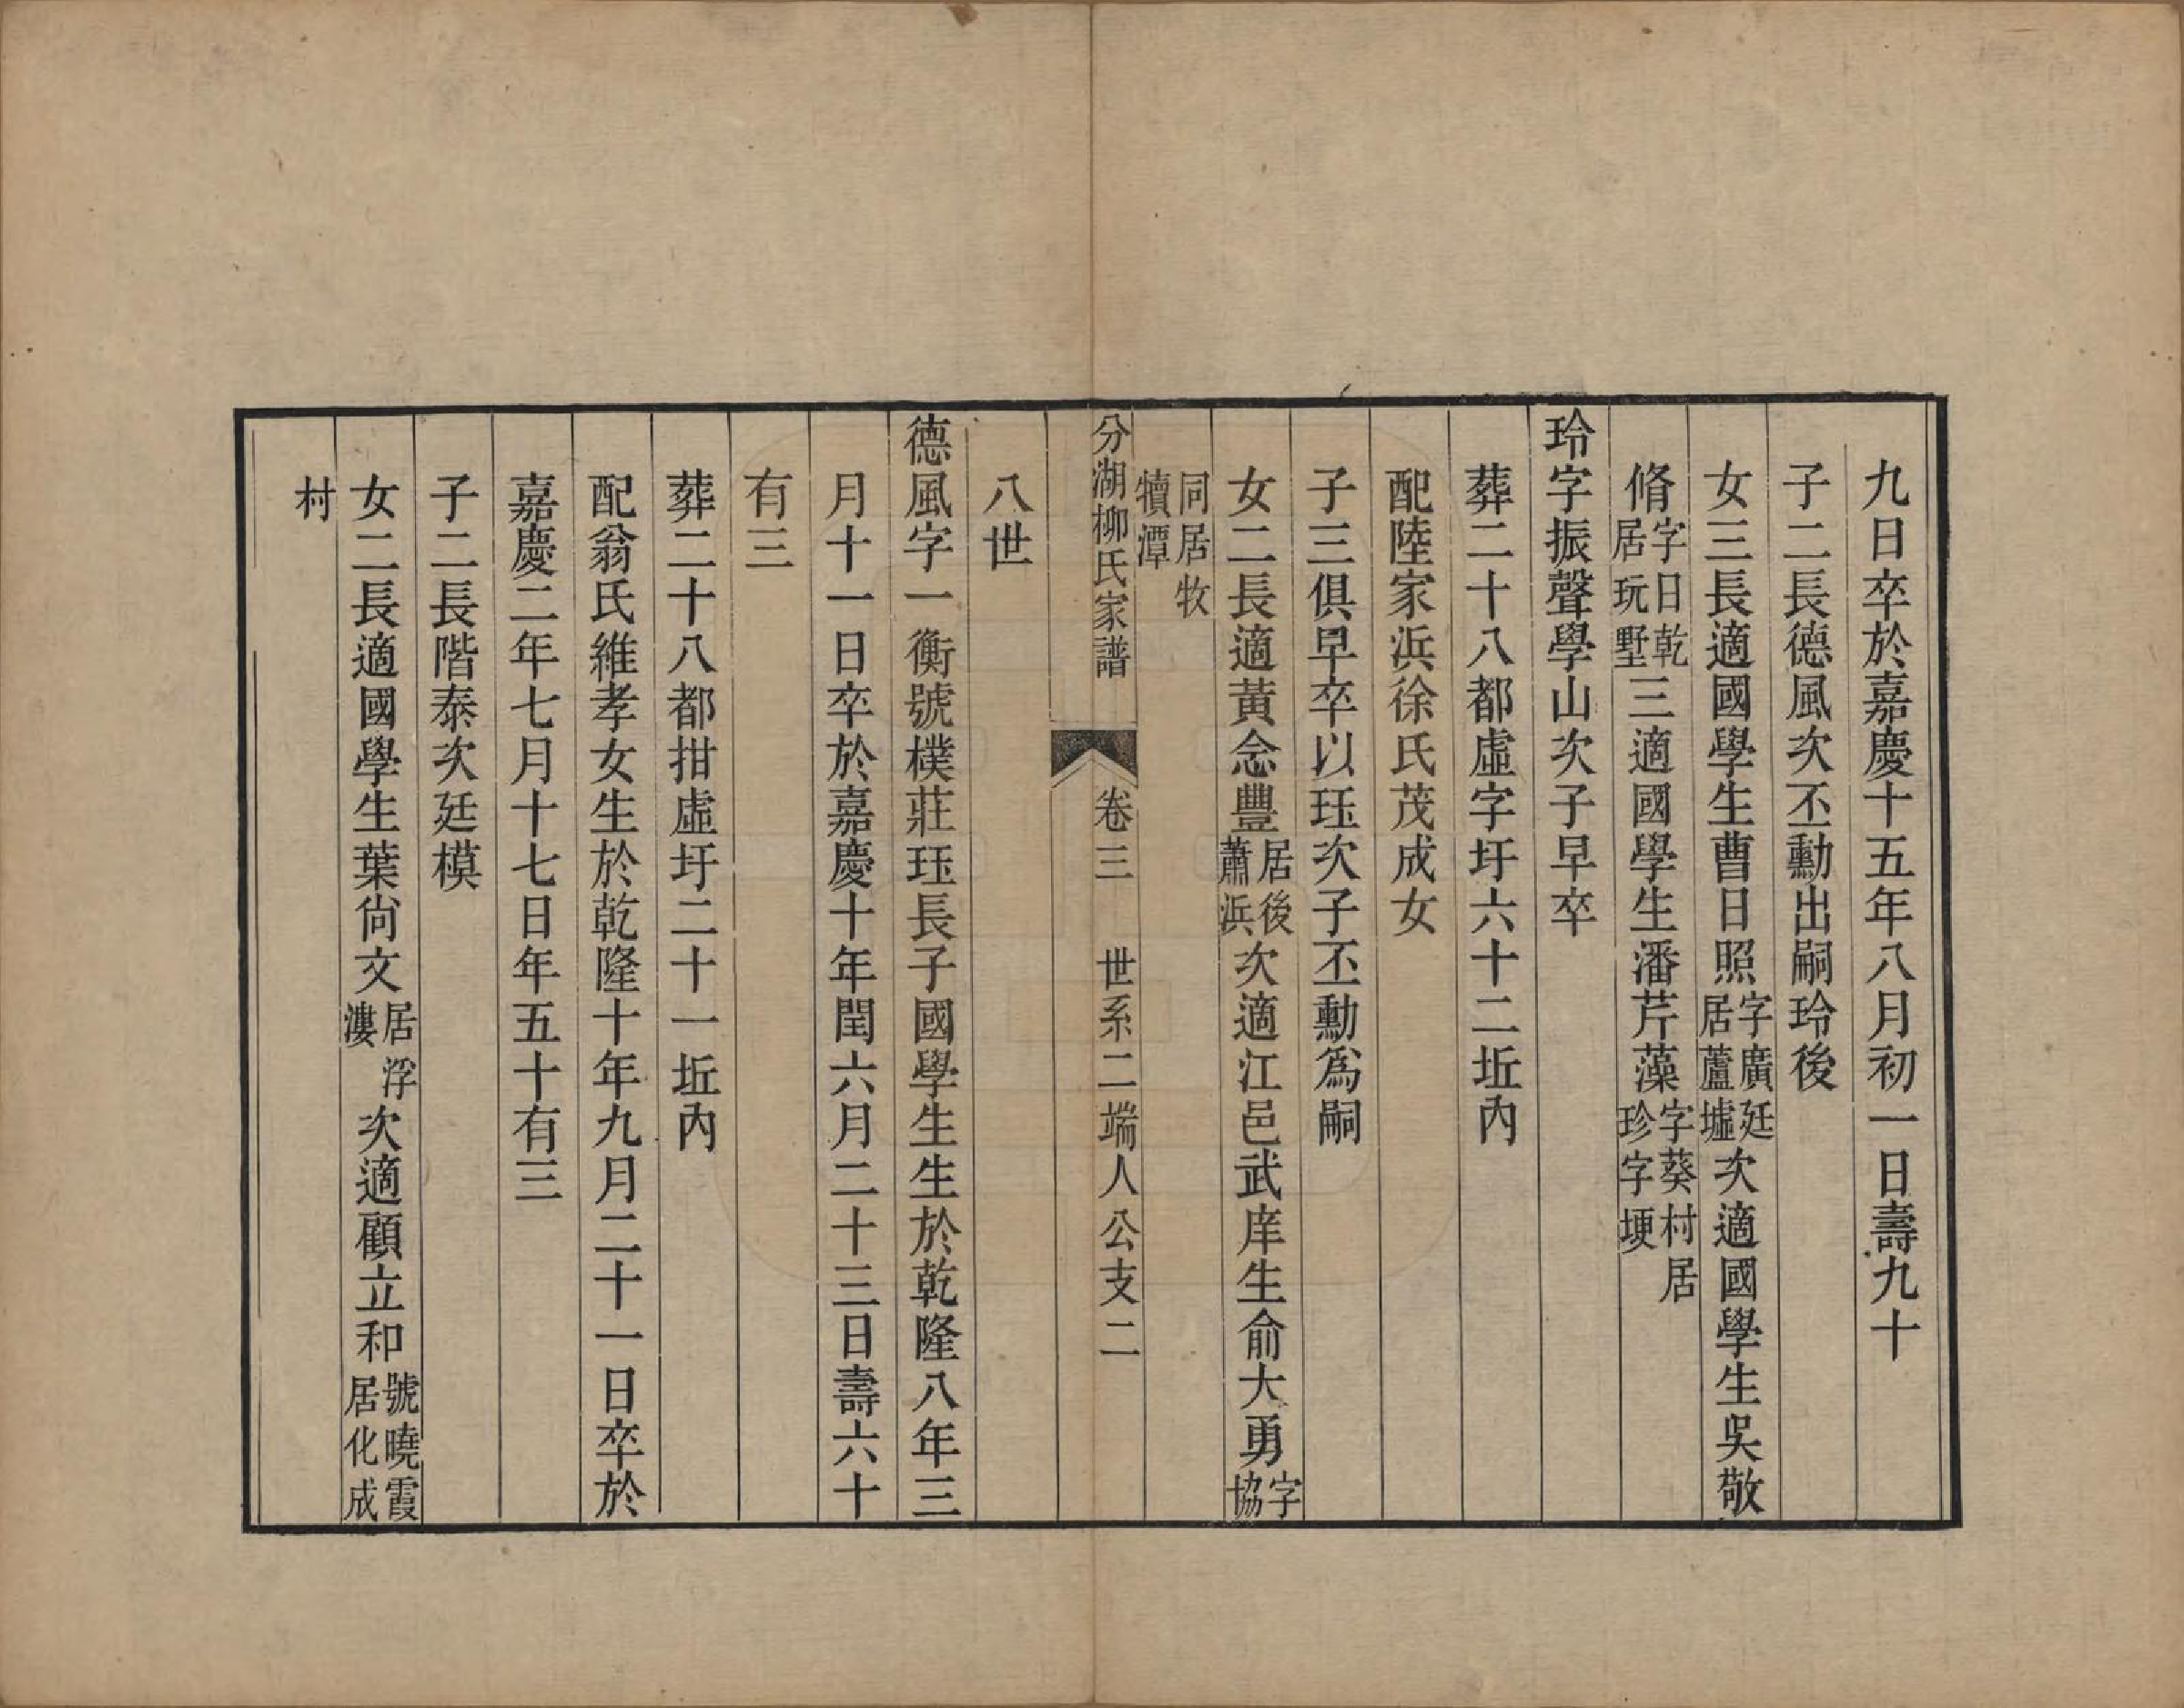 九日卒於嘉慶十五年八月初一日壽九十
子二長德風次丕勳出嗣玲後
女三長適國學生曹日照字廣廷居蘆墟次適國學生吳敬
脩字日乾居玩墅三適國學生潘芹藻字葵村居珍字埂
玲字振聲學山次子早卒
葬二十八都虛字圩六十二坵內
配陸家浜徐氏茂成女
子三俱早卒以珏次子丕勳為嗣
女二長適黃念豐居後蕭浜次適江邑武庠生俞大勇字協
同居牧犢潭
分湖柳氏家譜 卷三 世系二端人公支二
八世
德風字一衡號樸莊珏長子國學生生於乾隆八年三
月十一日卒於嘉慶十年閏六月二十三日壽六十
有三
葬二十八都拑虛圩二十一坵內
配翁氏維孝女生於乾隆十年九月二十一日卒於
嘉慶二年七月十七日年五十有三
子二長階泰次廷模
女二長適國學生葉尚文居浮漊次適顧立和號曉霞居化成
村